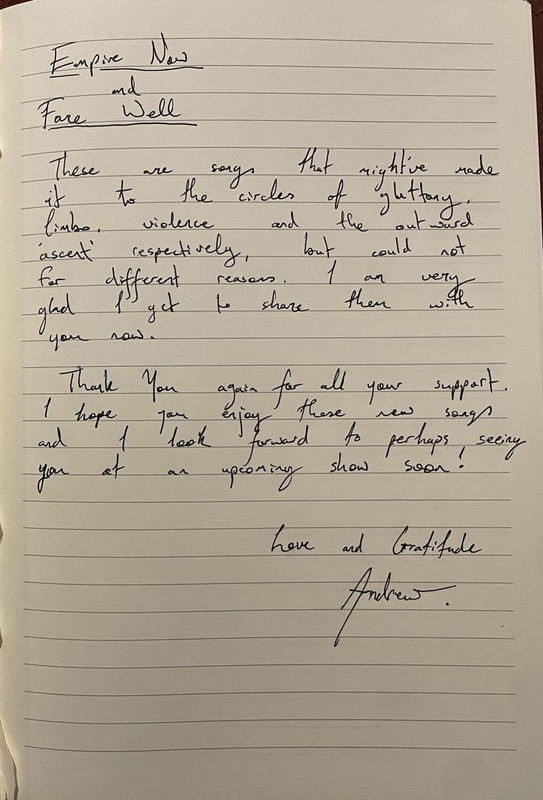 Empire Now
and
Fare Well
These are songs that might've made
it to the circles of gluttony,
limbo, violence and the outward
'ascent' respectively, but could not
for different reasons. I am very
glad I get to share them with
you now.
Thank You again for all your support.
I hope you enjoy these new songs
and I look forward to perhaps seeing
you at an upcoming show soon!
Love and Gratitude
Andrew.